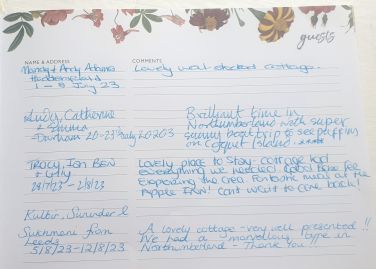 guests
NAME & ADDRESS COMMENTS
Mandy & Andy Adams Lovely well stocked cottage.
Huddersfield
1 - 8 July 23
Judy, Catherine Brilliant time in
& Emma Northumberland with super
Durham 20-23 July 20203 sunny boat trip to see puffins
on Coquet Island.
Tracy, Ian Ben Lovely place to stay - cottage had
& Lily everything we needed!
28/7/23 - 2/8/23 Exploring the area. Fantastic meal at the
Apple Inn! Can't wait to come back!
Kulbir, Surinder &
Sukhmani from A lovely cottage - very well presented!!
Leeds We had a marvellous time in
5/8/23-12/8/23 Northumberland - Thank You!